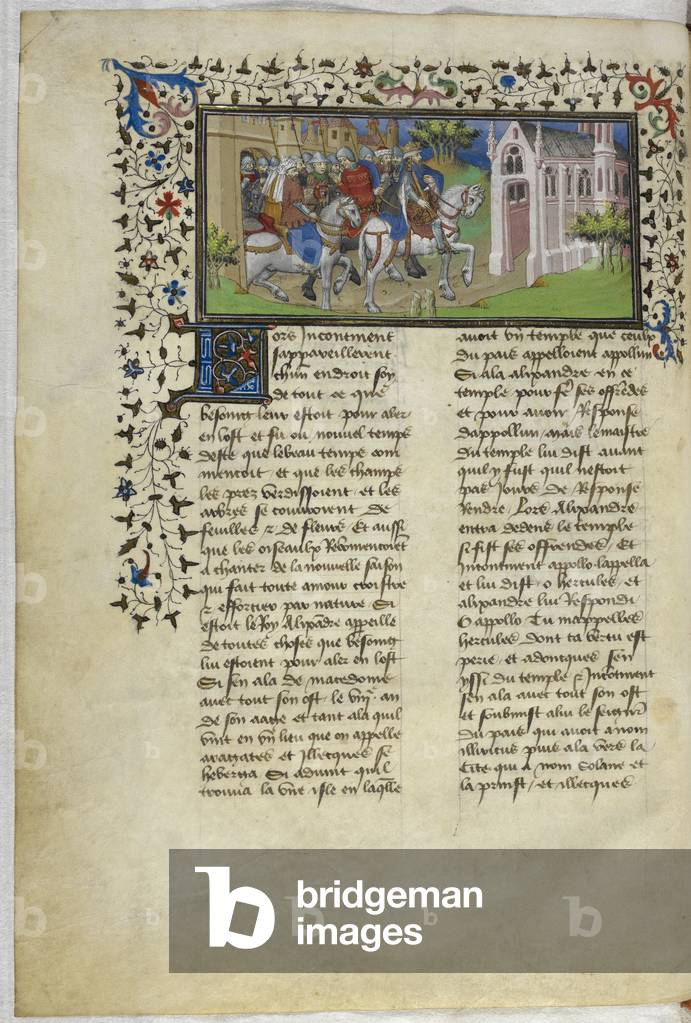 Lors incontinent
sappareillerent
chun endroit soy
de tout ce que
besoing leur estoit pour aler
en lost et fu ou nouvel temps
deste que le beau temps com
mencoit et que les champs
les prez verdissoient et les
arbres se couvroient de
feuilles & de fleurs Et aussi
que les oiseaulx Recomencoient
a chanter de la nouvelle saison
qui fait toute amour croistre
& efforcier par nature Si
estoit le Roy Alixandre appeille
de toutes choses que besoing
lui estoient pour aler en lost
Si sen ala de macedoine
avec tout son ost le an
de son aage et tant ala quil
vint en vn lieu que on appelle
et Illecques se
heberga Si advint quil
trouva la vne isle en laqlle
avoit vn temple que ceulx
du pais appelloient appollin
Si ala alixandre en ce
temple pour fe ses offredes
et pour avoir Response
dappollin mais le maistre
du temple lui dist avant
quil y fust quil nestoit
pas Jours de Response
Rendre Lors Alixandre
entra dedens le temple
si fist ses offrendes Et
Incontinent appollo lappella
et lui dist o hercules et
alixandre lui Respondi
O appollo Tu mappelles
hercules dont ta vertu est
perie et adoncques sen
yssi du temple & Incontinent
sen ala avec tout son ost
et soubmist a lui le seignr
du pais qui avoit a nom
puis ala vers la
Cite qui a nom Solane et
la prinst et illecques
bridgeman
images